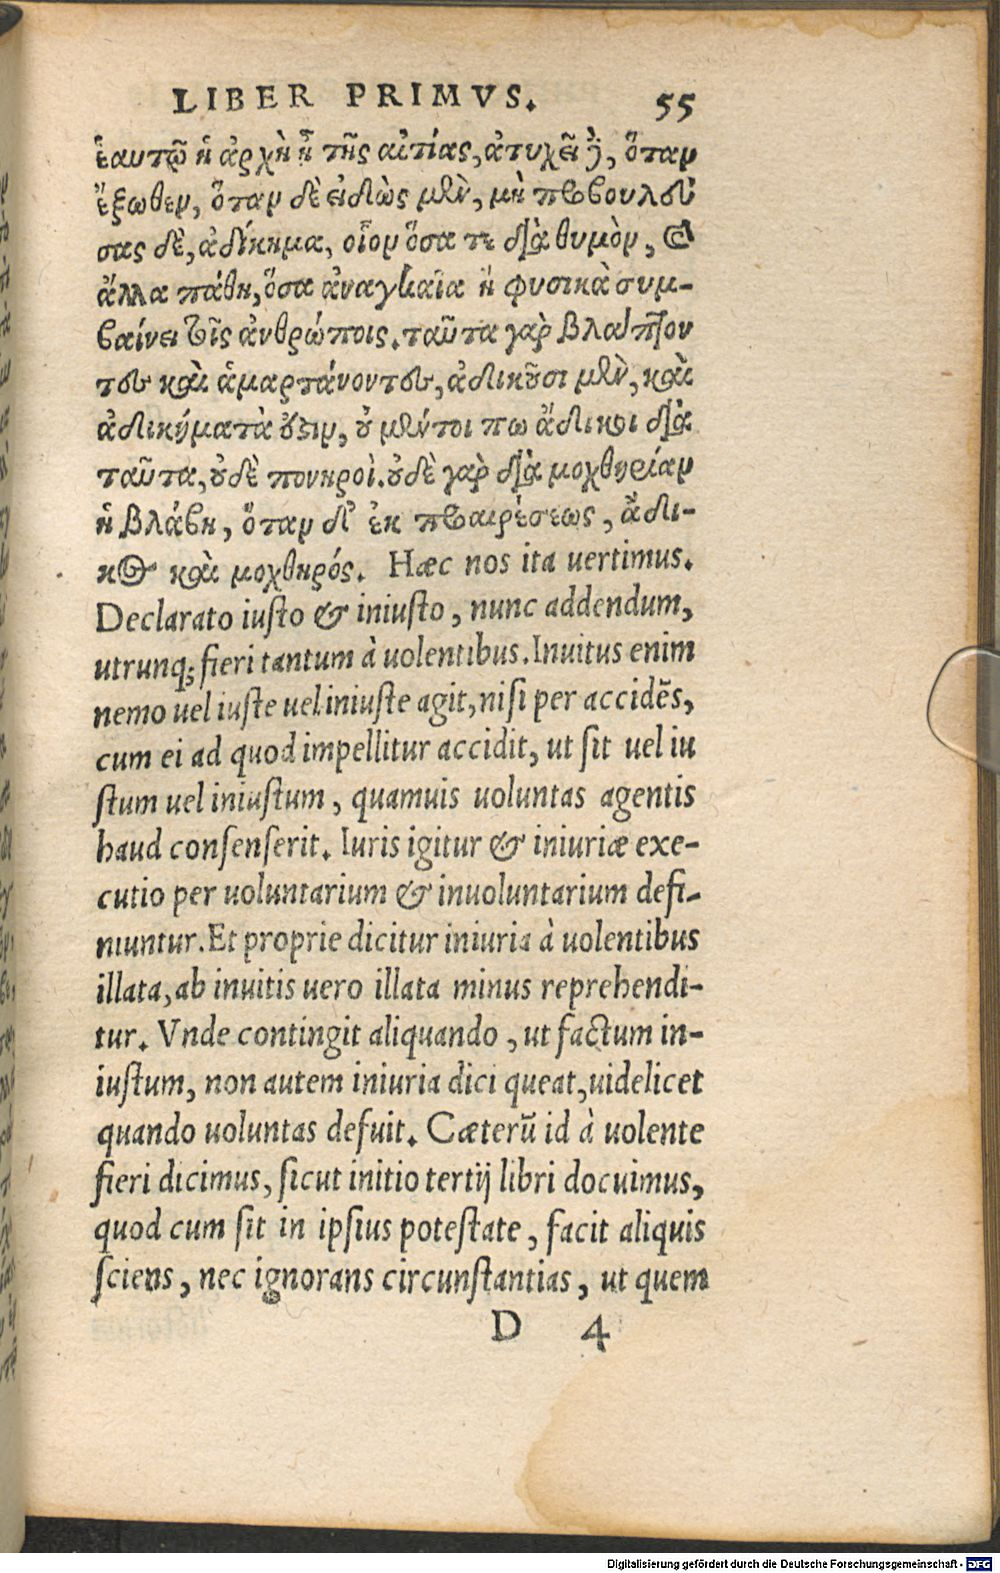 LIBER PRIMVS. 55
ἑαυτῷ ἡ ἀρχὴ ᾖ τῆς αἰτίας, ἀτυχεῖ δὲ, ὅταν
ἔξωθεν, ὅταν δὲ εἰδὼς μὲν, μὴ προβουλεύ
σας δὲ, ἀδίκημα, οἷον ὅσα τε διὰ θυμὸν, καὶ
ἄλλα πάθη, ὅσα ἀναγκαῖα ἢ φυσικὰ συμ-
βαίνει τοῖς ἀνθρώποις. ταῦτα γὰρ βλάπτον
τες καὶ ἁμαρτάνοντες, ἀδικοῦσι μὲν, καὶ
ἀδικήματὰ ἐστιν, οὐ μέντοι πω ἄδικοι διὰ
ταῦτα, οὐδὲ πονηροὶ. οὐδὲ γὰρ διὰ μοχθηρίαν
ἡ βλάβη, ὅταν δ' ἐκ προαιρέσεως, ἄδι-
κος καὶ μοχθηρός. Hæc nos ita uertimus.
Declarato iusto & iniusto, nunc addendum,
utrunq; fieri tantum à uolentibus. Inuitus enim
nemo uel iuste uel iniuste agit, nisi per accidēs,
cum ei ad quod impellitur accidit, ut sit uel iu
stum uel iniustum, quamuis uoluntas agentis
haud consenserit. Iuris igitur & iniuriæ exe-
cutio per uoluntarium & inuoluntarium defi-
niuntur. Et proprie dicitur iniuria à uolentibus
illata, ab inuitis uero illata minus reprehendi-
tur. Vnde contingit aliquando, ut factum in-
iustum, non autem iniuria dici queat, uidelicet
quando uoluntas defuit. Cæterū id à uolente
fieri dicimus, sicut initio tertij libri docuimus,
quod cum sit in ipsius potestate, facit aliquis
sciens, nec ignorans circunstantias, ut quem
D 4
Digitalisierung gefördert durch die Deutsche Forschungsgemeinschaft - DFG